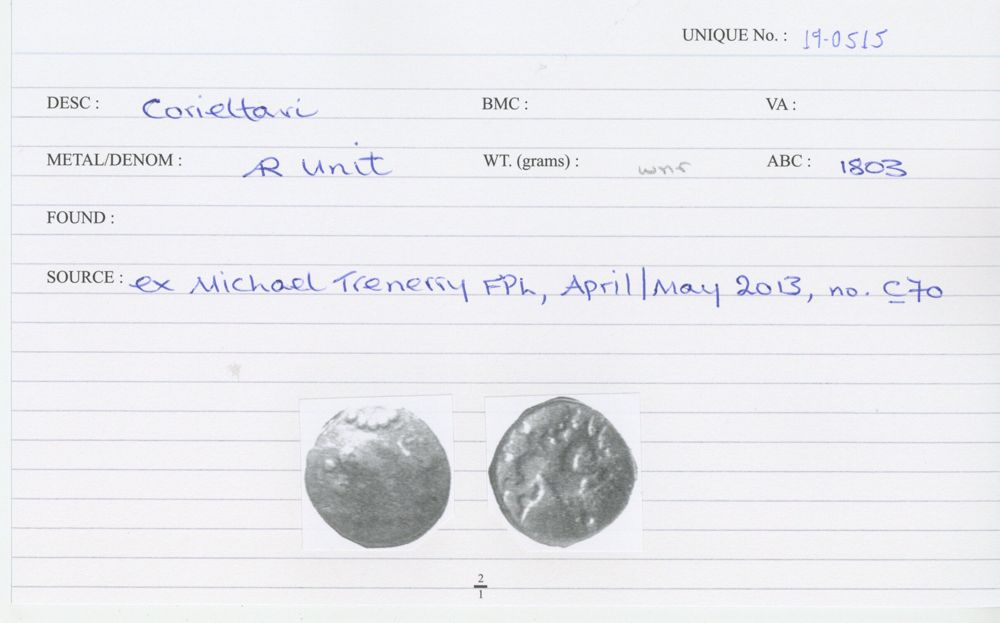 UNIQUE No. : 19-0515
DESC : Corieltavi BMC : VA :
METAL/DENOM : AR Unit WT. (grams) : wnr ABC : 1803
FOUND :
SOURCE : ex Michael Trenerry FPL, April/May 2013, no. C70
2
1